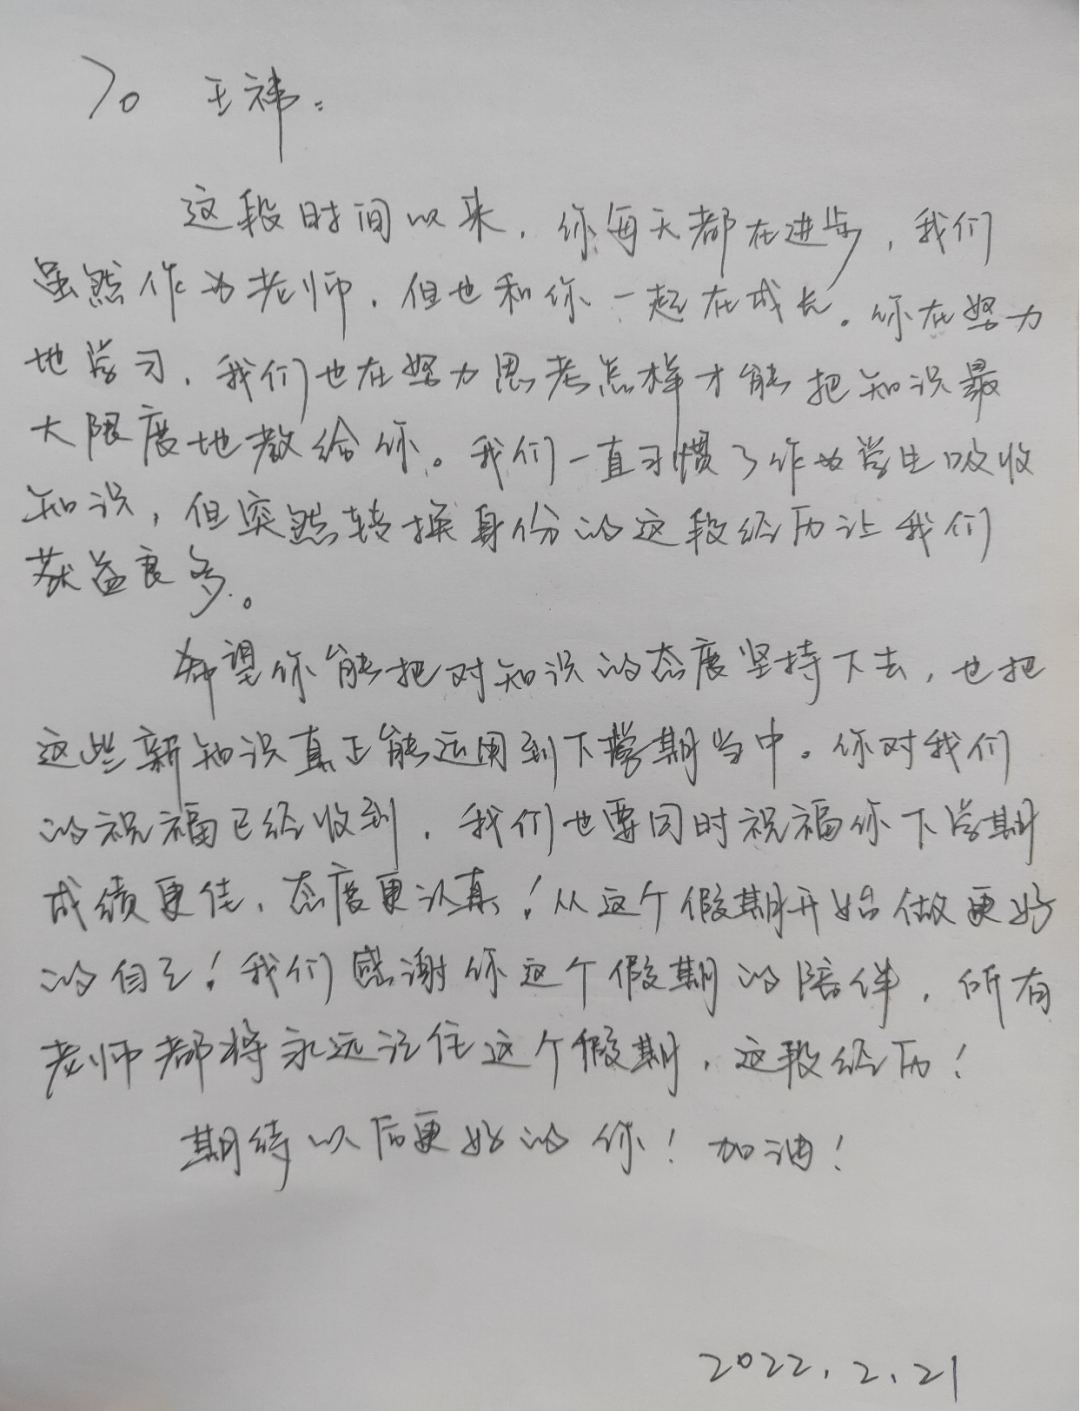 To 王祎：
这段时间以来，你每天都在进步，我们
虽然作为老师，但也和你一起在成长。你在努力
地学习，我们也在努力思考怎样才能把知识最
大限度地教给你。我们一直习惯了作为学生吸收
知识，但突然转换身份的这段经历让我们
获益良多。
希望你能把对知识的态度坚持下去，也把
这些新知识真正能运用到下学期当中。你对我们
的祝福已经收到，我们也要同时祝福你下学期
成绩更佳，态度更认真！从这个假期开始做更好
的自己！我们感谢你这个假期的陪伴，所有
老师都将永远记住这个假期，这段经历！
期待以后更好的你！加油！
2022.2.21